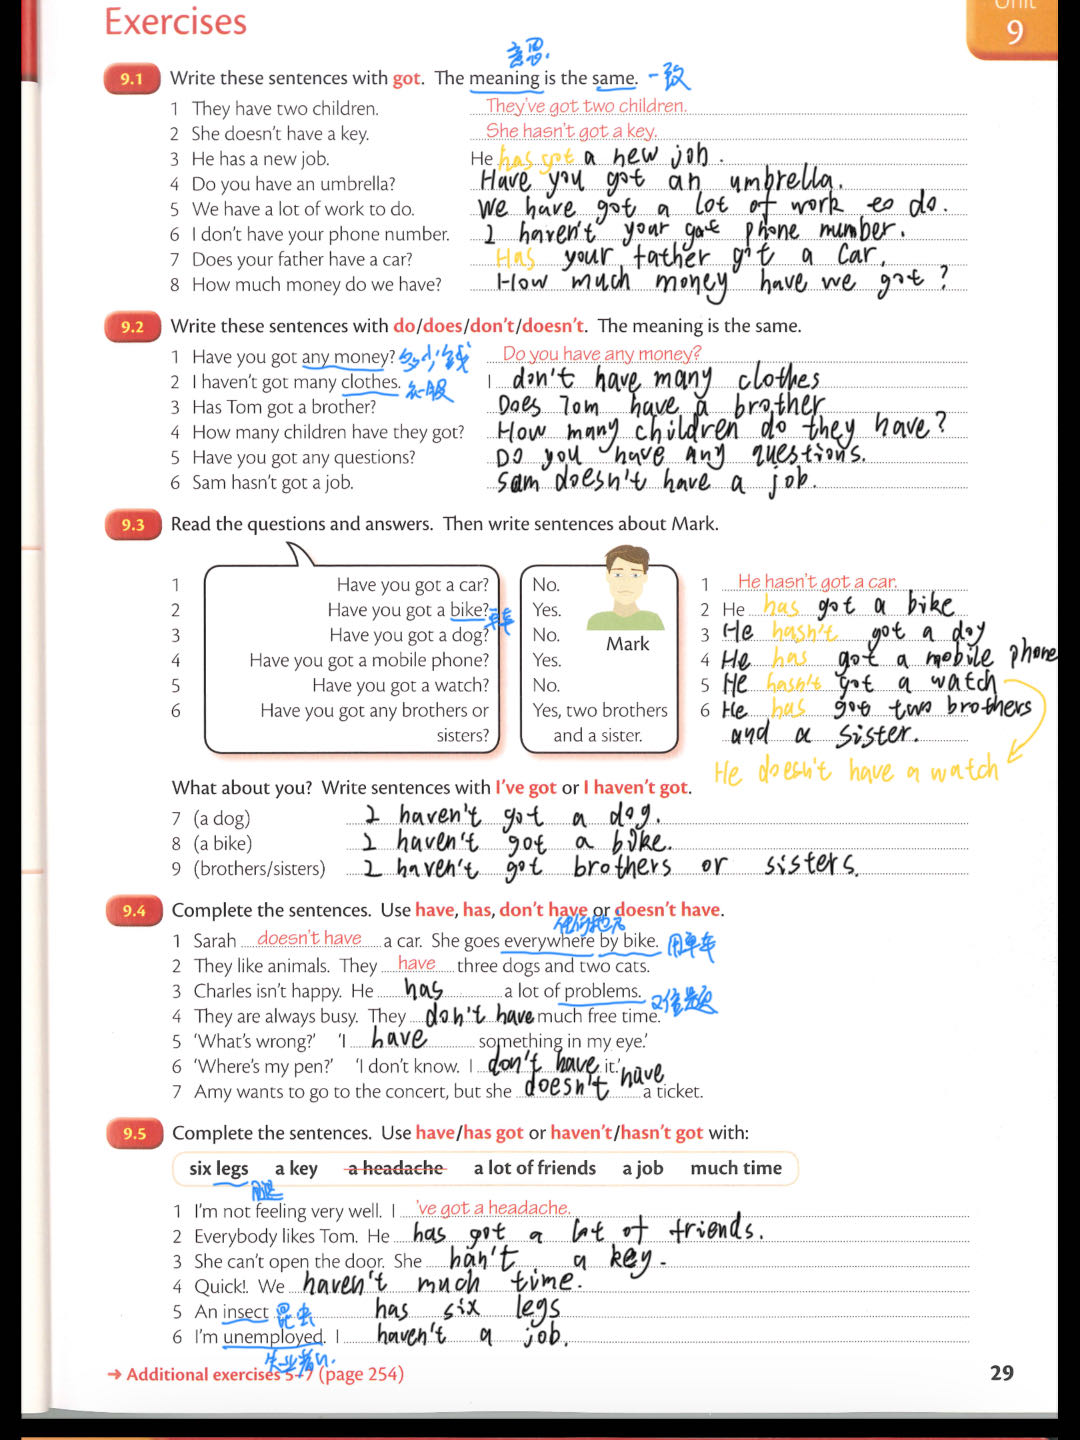 Exercises
Unit
9
意思.
9.1 Write these sentences with got. The meaning is the same. 一致
1 They have two children. They've got two children.
2 She doesn't have a key. She hasn't got a key.
3 He has a new job. He has got a new job.
4 Do you have an umbrella? Have you got an umbrella.
5 We have a lot of work to do. We have got a lot of work to do.
6 I don't have your phone number. I haven't your got phone number.
7 Does your father have a car? Has your father got a car.
8 How much money do we have? How much money have we got ?
9.2 Write these sentences with do/does/don't/doesn't. The meaning is the same.
1 Have you got any money? 多少钱 Do you have any money?
2 I haven't got many clothes. 衣服 I don't have many clothes
3 Has Tom got a brother? Does Tom have a brother
4 How many children have they got? How many children do they have?
5 Have you got any questions? Do you have any questions.
6 Sam hasn't got a job. Sam doesn't have a job.
9.3 Read the questions and answers. Then write sentences about Mark.
1 Have you got a car? No. 1 He hasn't got a car.
2 Have you got a bike? 单车 Yes. 2 He has got a bike
3 Have you got a dog? No. Mark 3 He hasn't got a dog
4 Have you got a mobile phone? Yes. 4 He has got a mobile phone
5 Have you got a watch? No. 5 He hasn't got a watch
6 Have you got any brothers or Yes, two brothers 6 He has got two brothers
sisters? and a sister. and a sister.
He doesn't have a watch
What about you? Write sentences with I've got or I haven't got.
7 (a dog) I haven't got a dog.
8 (a bike) I haven't got a bike.
9 (brothers/sisters) I haven't got brothers or sisters.
9.4 Complete the sentences. Use have, has, don't have or doesn't have.
1 Sarah doesn't have a car. She goes everywhere by bike. 用单车
2 They like animals. They have three dogs and two cats.
3 Charles isn't happy. He has a lot of problems.
4 They are always busy. They don't have much free time.
5 'What's wrong?' 'I have something in my eye.'
6 'Where's my pen?' 'I don't know. I don't have it.'
7 Amy wants to go to the concert, but she doesn't have a ticket.
9.5 Complete the sentences. Use have/has got or haven't/hasn't got with:
six legs a key a headache a lot of friends a job much time
腿
1 I'm not feeling very well. I 've got a headache.
2 Everybody likes Tom. He has got a lot of friends.
3 She can't open the door. She han't a key.
4 Quick!. We haven't much time.
5 An insect 昆虫 has six legs
6 I'm unemployed. I haven't a job.
失业着い.
→ Additional exercises 5–7 (page 254)
29